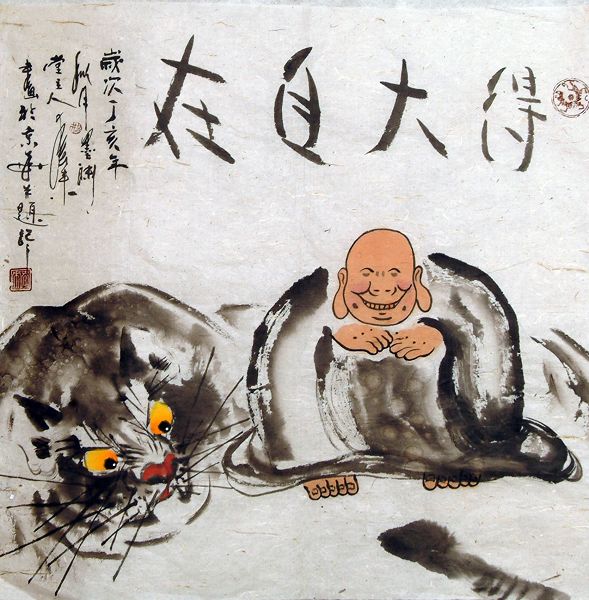 得大自在
歲次丁亥年
月墨
堂主人
畫於京華并題記